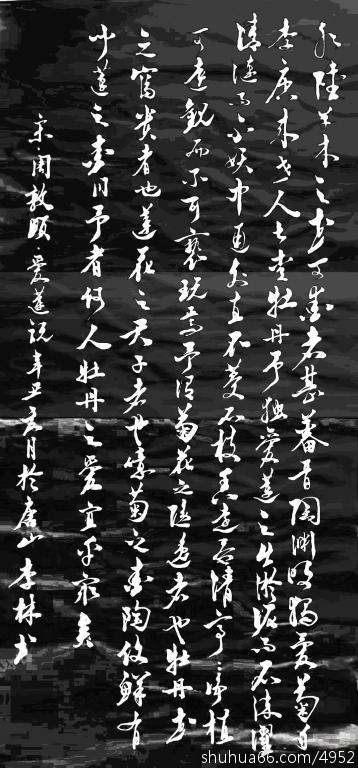 水陸草木之花可愛者甚蕃晉陶淵明獨愛菊自
李唐来世人甚愛牡丹予獨愛蓮之出淤泥而不染濯
清漣而不妖中通外直不蔓不枝香遠益清亭亭淨植
可遠觀而不可褻玩焉予謂菊花之隱逸者也牡丹花
之富貴者也蓮花之君子者也噫菊之愛陶後鮮有
聞蓮之愛同予者何人牡丹之愛宜乎眾矣
宋周敦頤愛蓮説辛丑亥月於唐山李林书
shuhua66.com/4952